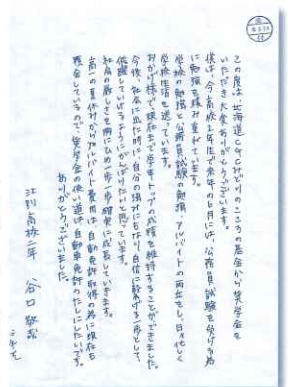 この度は、北海道CGCみどりとこころの基金から奨学金を
いただき、大変ありがとうございます。
僕は、今、高校2年生で来年の9月には、公務員試験を受ける為
に勉強を積み重ねています。
学校の勉強と公務員試験の勉強、アルバイトの両立をし、日々忙しく
学校生活を送っています。
おかげ様で、現在まで学年トップの成績を維持することができました。
今後、社会に出た時に、自分の強みになり、自信に繋げる一歩として、
保護していけるようにがんばりたいと思っています。
社会の厳しさを胸にひめ一歩一歩確実に成長していきます。
高一の夏休みからアルバイト費用は、自動車免許取得の為に現在も
預金しているので、奨学金の使い道は自動車免許のたしにしたいです。
ありがとうございました。
江別高校二年 谷口